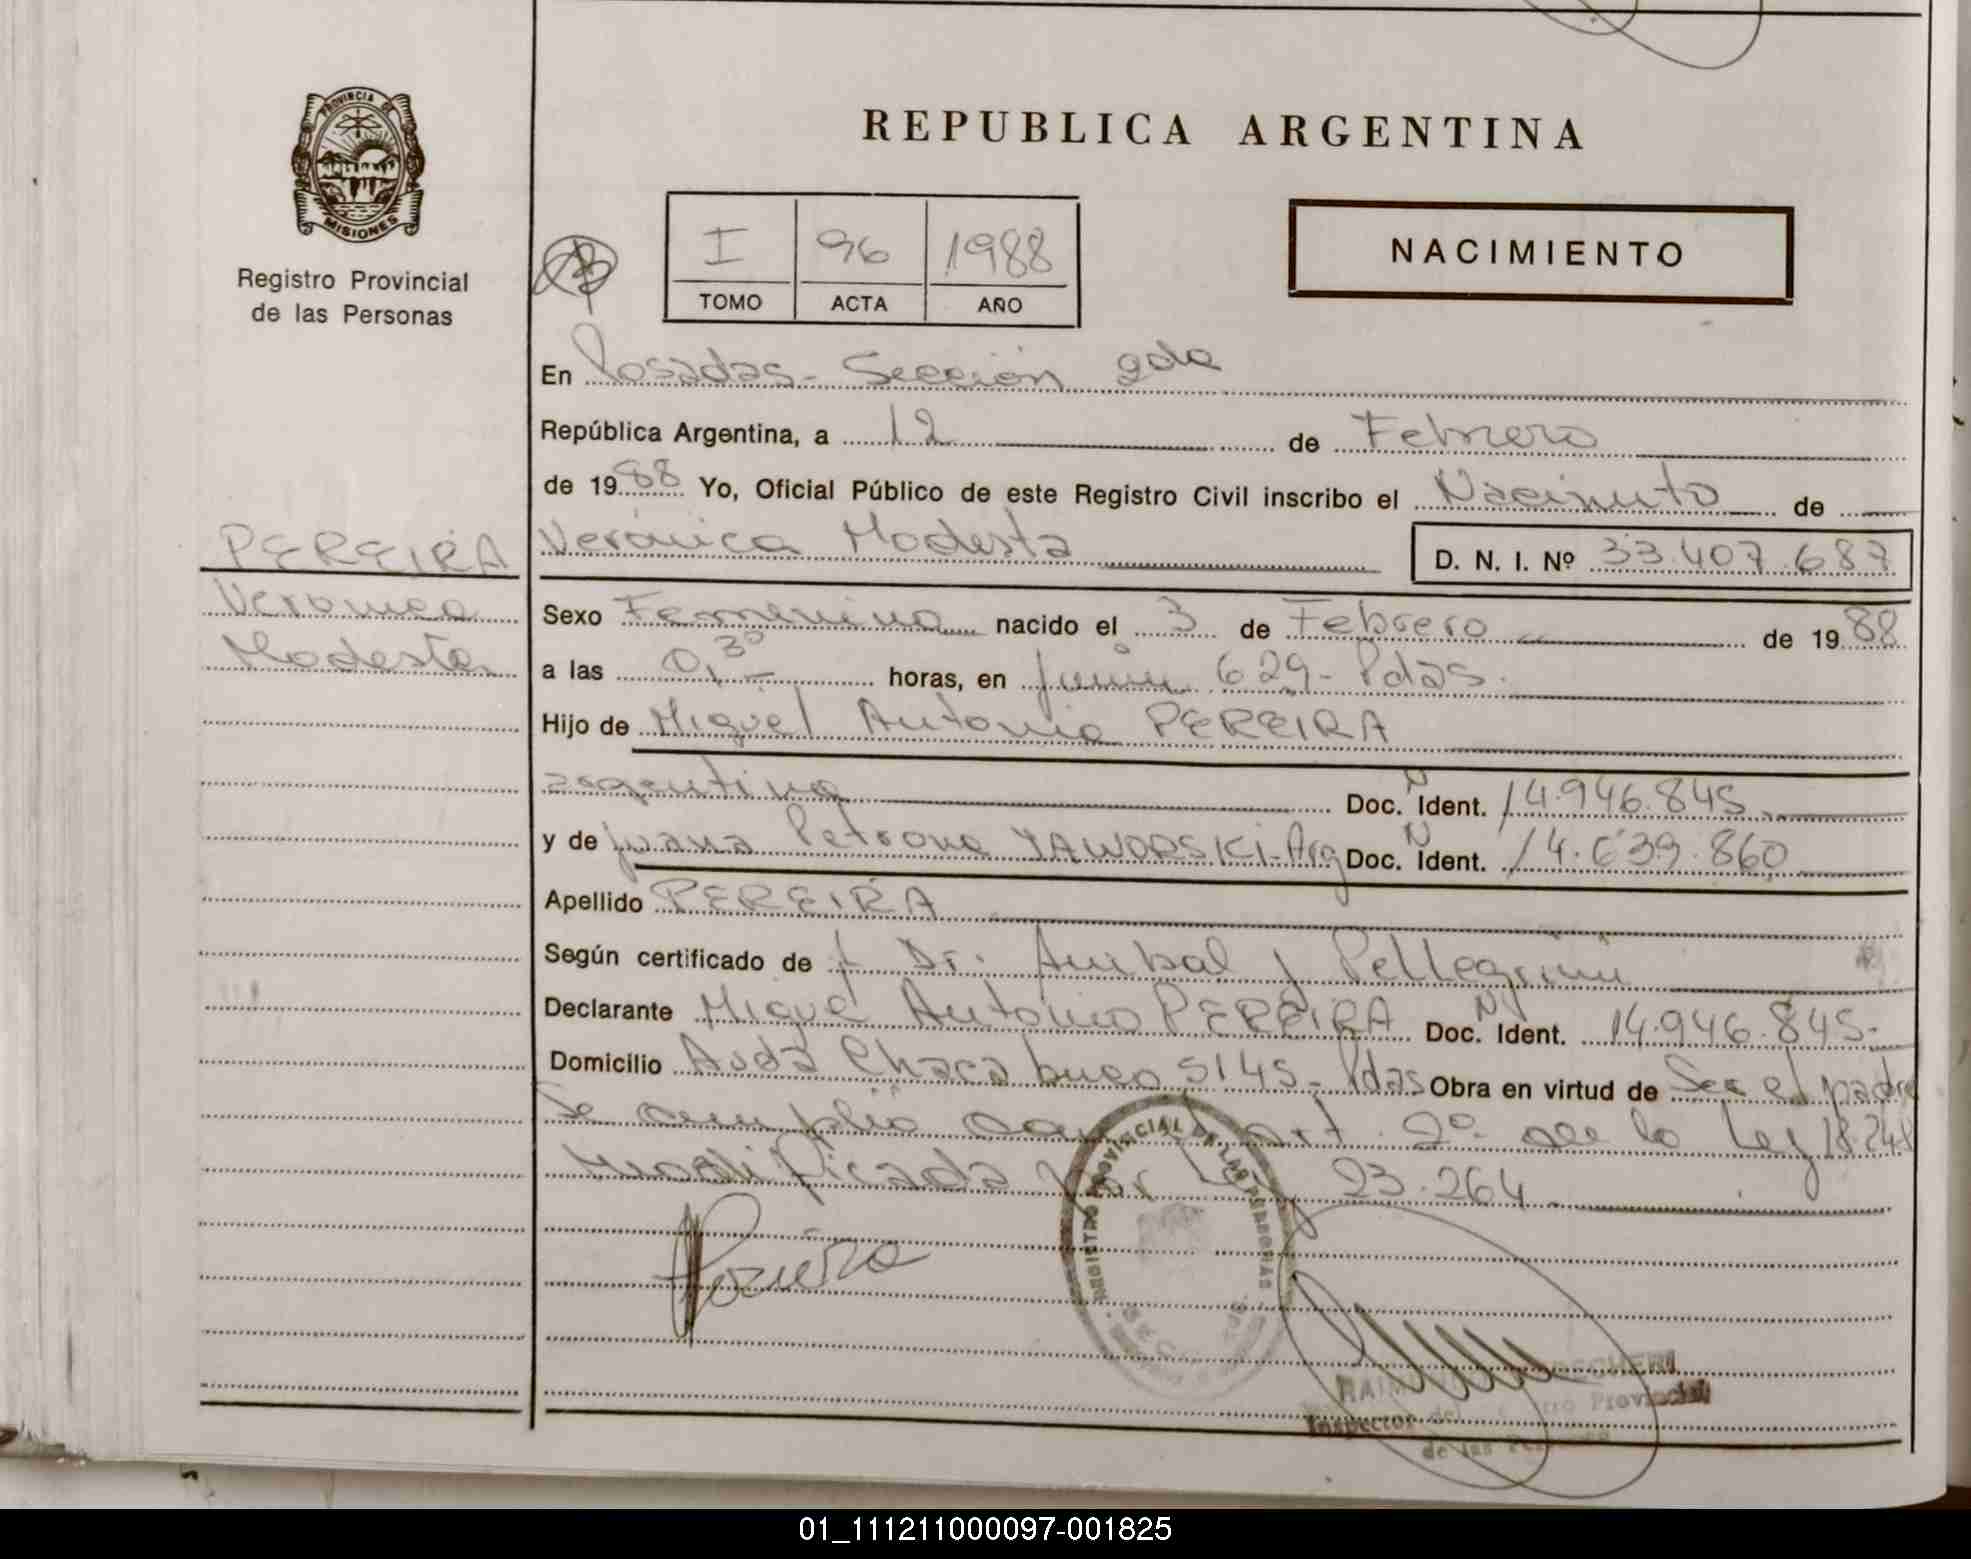 PROVINCIA DE
MISIONES
Registro Provincial
de las Personas
REPUBLICA ARGENTINA
I 96 1988
TOMO ACTA AÑO
NACIMIENTO
En Posadas - Sección 2da
República Argentina, a 12 de Febrero
de 1988 Yo, Oficial Público de este Registro Civil inscribo el Nacimto de
PEREIRA
Verónica
Modesta
Verónica Modesta D. N. I. Nº 33.407.687
Sexo Femenino nacido el 3 de Febrero de 1988
a las 0,30 horas, en Junin 629 - Pdas.
Hijo de Miguel Antonio PEREIRA
argentino Doc. N Ident. 14.946.845
y de Juana Petrona YAWORSKI - Arg Doc. N Ident. 14.639.860
Apellido PEREIRA
Según certificado de Dr. Anibal J Pellegrini
Declarante Miguel Antonio PEREIRA Doc. N Ident. 14.946.845-
Domicilio Avda Chacabuco 5145 - Pdas Obra en virtud de Ser el padre
Se cumplió con art. 2º de la Ley 18.248
modificada por Ley 23.264
Pereira
REGISTRO PROVINCIAL DE LAS PERSONAS
Inspector del Provincial
de las
01_111211000097-001825